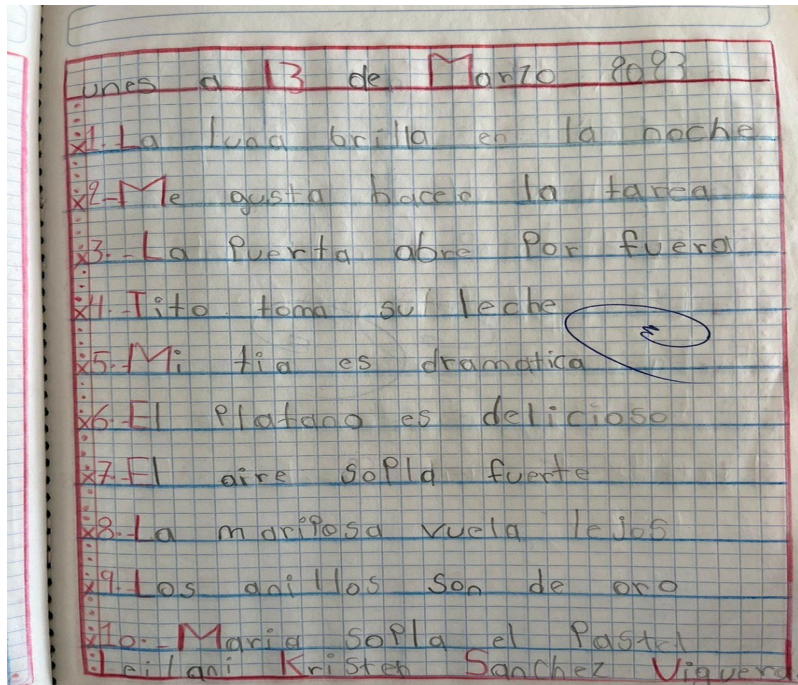 Lunes a 13 de Marzo 2023
1.-La luna brilla en la noche
2-Me gusta hacer la tarea
3.-La Puerta abre Por fuera
4.-Tito toma su leche
5.-Mi tia es dramatica
6.-El Platano es delicioso
7.-El aire soPla fuerte
8.-La mariPosa vuela lejos
9.-Los anillos son de oro
10.-Maria soPla el Pastel
Leilani Kristen Sanchez Viguera